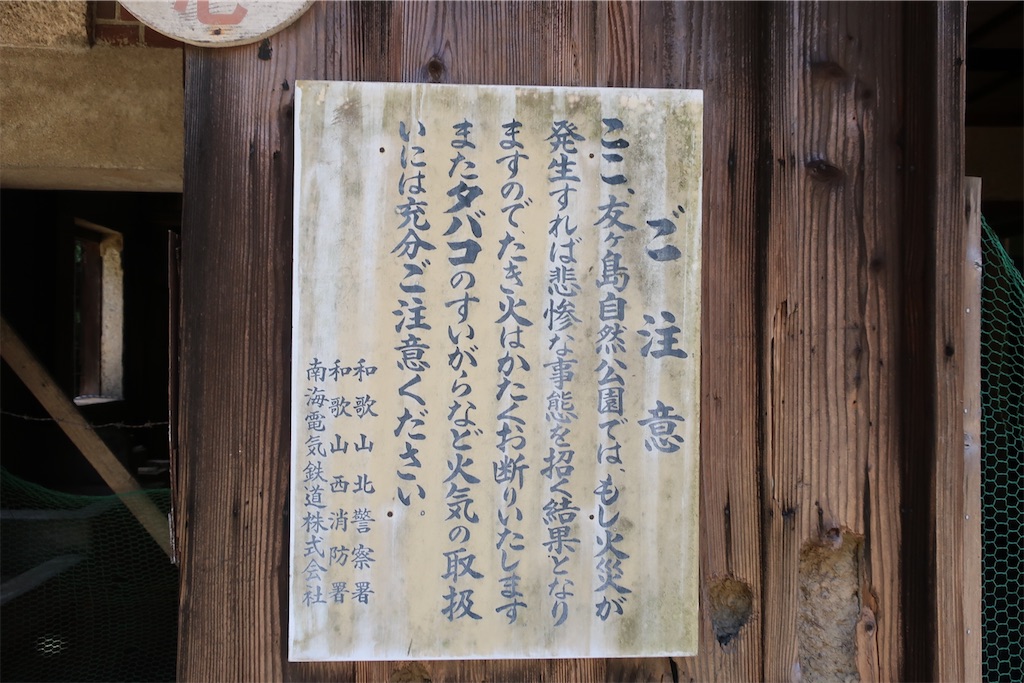 ご注意
ここ、友ヶ島自然公園では、もし火災が
発生すれば悲惨な事態を招く結果となり
ますので、たき火はかたくお断りいたします
またタバコのすいがらなど火気の取扱
いには充分ご注意ください。
和歌山北警察署
和歌山西消防署
南海電気鉄道株式会社